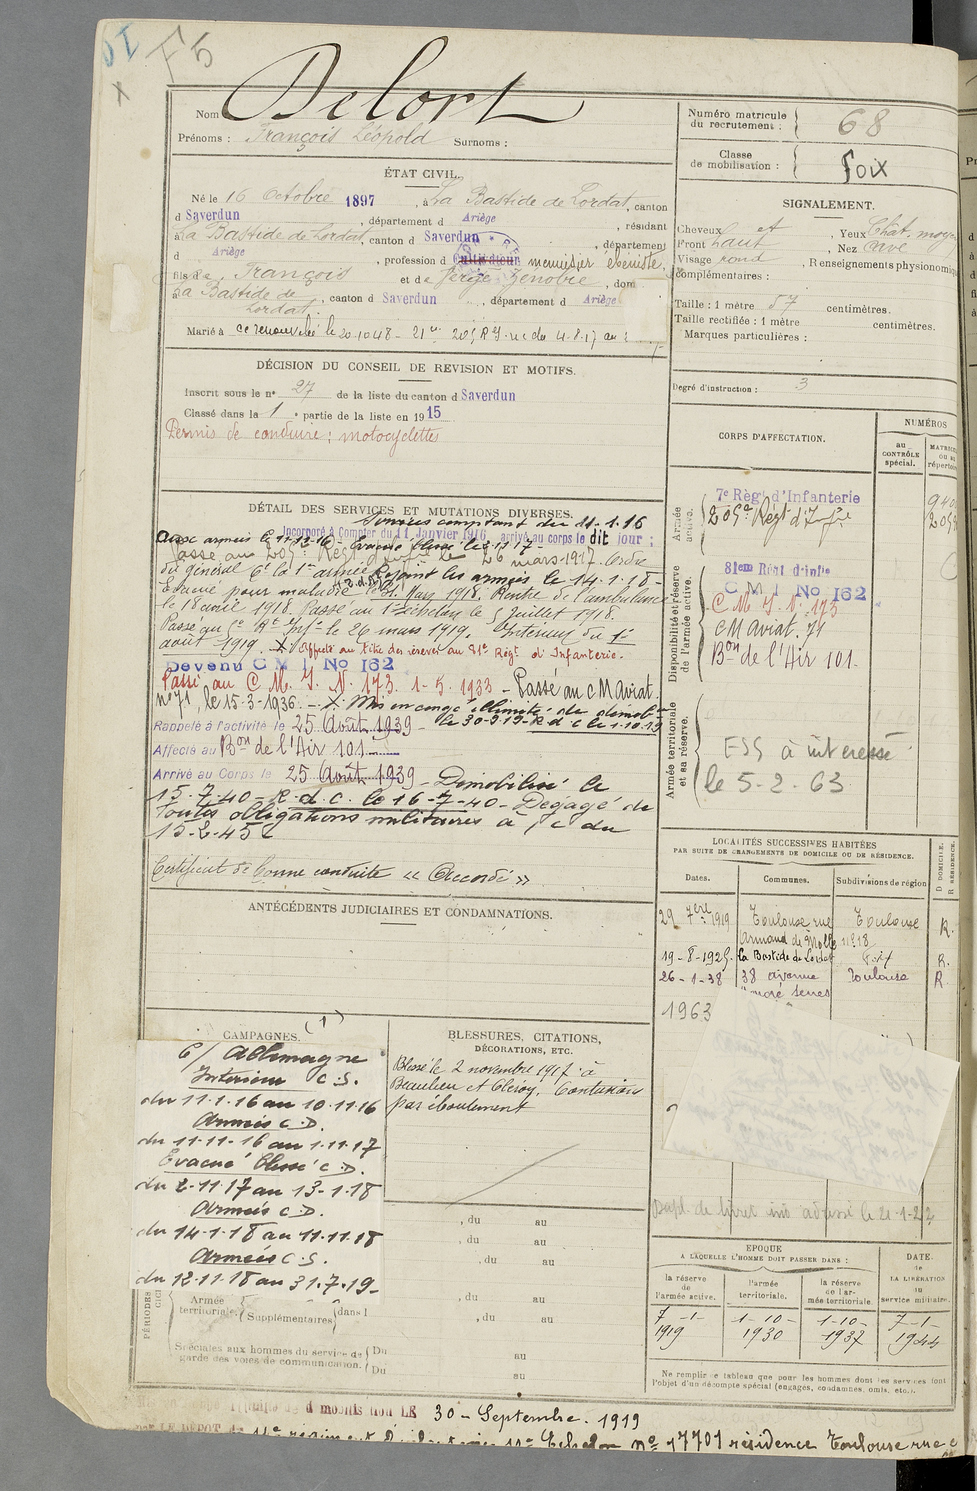 F5
Nom Delort
Prénoms : François Léopold Surnoms :
Numéro matricule du recrutement : 68
Classe de mobilisation : Foix
ÉTAT CIVIL.
Né le 16 Octobre 1897, à La Bastide de Lordat, canton
d Saverdun, département d Ariège, résidant
à La Bastide de Lordat, canton d Saverdun, département
d Ariège, profession d Cultivateur menuisier ébéniste
fils de François et de Zénobie, dom
à La Bastide de Lordat, canton d Saverdun, département d Ariège
Marié à
SIGNALEMENT.
Cheveux Chat. Yeux
Front haut Nez cave
Visage rond Renseignements physionomiq
complémentaires :
Taille : 1 mètre 57 centimètres.
Taille rectifiée : 1 mètre centimètres.
Marques particulières :
DÉCISION DU CONSEIL DE REVISION ET MOTIFS.
Inscrit sous le n° 27 de la liste du canton d Saverdun
Classé dans la 1e partie de la liste en 1915
Permis de conduire : motocyclettes
Degré d'instruction : 3
CORPS D'AFFECTATION.
NUMÉROS
au CONTRÔLE spécial.
Armée active.
7e Régt d'Infanterie
205e Régt d'Infie
Disponibilité et réserve de l'armée active.
81em Régt d'infie
C M I No 162
C. M. I. N. 173
CM Aviat. 71
Bon de l'Air 101
Armée territoriale et sa réserve.
ESS à intéressé
le 5-2-63
DÉTAIL DES SERVICES ET MUTATIONS DIVERSES.
Services comptant du 11-1-16
Incorporé à Compter du 11 Janvier 1916, arrivé au corps le dit jour ;
aux armées le 11-11-16 - Évacué blessé le 2-11-17 -
Passé au 205e Régt d'Infie le 26 mars 1917. Ordre
du général Ct la 1e armée. Rejoint les armées le 14-1-18 -
Évacué pour maladie le 31 Mars 1918. Rentré de l'ambulance
le 18 avril 1918. Passé au 1er échelon le 5 Juillet 1918.
Passé au Rt Infie le 26 mars 1919. Intérieur du 1er
août 1919. X. Affecté au titre des réserves au 81e Régt d'Infanterie.
Devenu C M I No 162
Passé au C. M. I. N. 173. 1-5-1933 - Passé au CM Aviat.
no 71, le 15-3-1936. - X. Mis en congé illimité de démob.
le 30-9-19 - R d c le 1-10-19
Rappelé à l'activité le 25 Août 1939 -
Affecté au Bon de l'Air 101
Arrivé au Corps le 25 Août 1939 - Démobilisé le
15-7-40 - R. d. c. le 16-7-40 - Dégagé de
toutes obligations militaires à c du
15-2-45
Certificat de bonne conduite « Accordé »
ANTÉCÉDENTS JUDICIAIRES ET CONDAMNATIONS.
LOCALITÉS SUCCESSIVES HABITÉES
PAR SUITE DE CHANGEMENTS DE DOMICILE OU DE RÉSIDENCE.
Dates. Communes. Subdivisions de région
D DOMICILE. R RÉSIDENCE.
29 7bre 1919 Toulouse rue Toulouse R.
Armand de n° 18
19-8-1925 La Bastide de Lordat Foix R.
26-1-38 38 avenue Toulouse R
Honoré Serres
1963
CAMPAGNES. (1)
C/ Allemagne
Intérieur C.S.
du 11.1.16 au 10.11.16
Armées C.D.
du 11-11-16 au 1-11-17
Évacué blessé C.D.
du 2-11-17 au 13-1-18
Armées C.D.
du 14-1-18 au 11.11.18
Armées C.S.
du 12-11-18 au 31.7.19 -
BLESSURES, CITATIONS, DÉCORATIONS, ETC.
Blessé le 2 novembre 1917 à
Beaulieu et Cléroy. Contusions
par éboulement
, du au
, du au
, du au
, du au
Armée territoriale. Supplémentaires dans l , du au
Spéciales aux hommes du service de garde des voies de communication. Du au
Du au
le 21-1-22
EPOQUE
A LAQUELLE L'HOMME DOIT PASSER DANS :
DATE de LA LIBÉRATION du service militaire.
la réserve de l'armée active. l'armée territoriale. la réserve de l'armée territoriale.
7-1-1919 1-10-1930 1-10-1937 7-1-1944
Ne remplir ce tableau que pour les hommes dont les services font
l'objet d'un décompte spécial (engagés, condamnés, omis, etc.).
LE 30 - Septembre. 1919
par LE DÉPÔT du régiment d'Infanterie 11e Echelon No 17701 résidence Toulouse rue